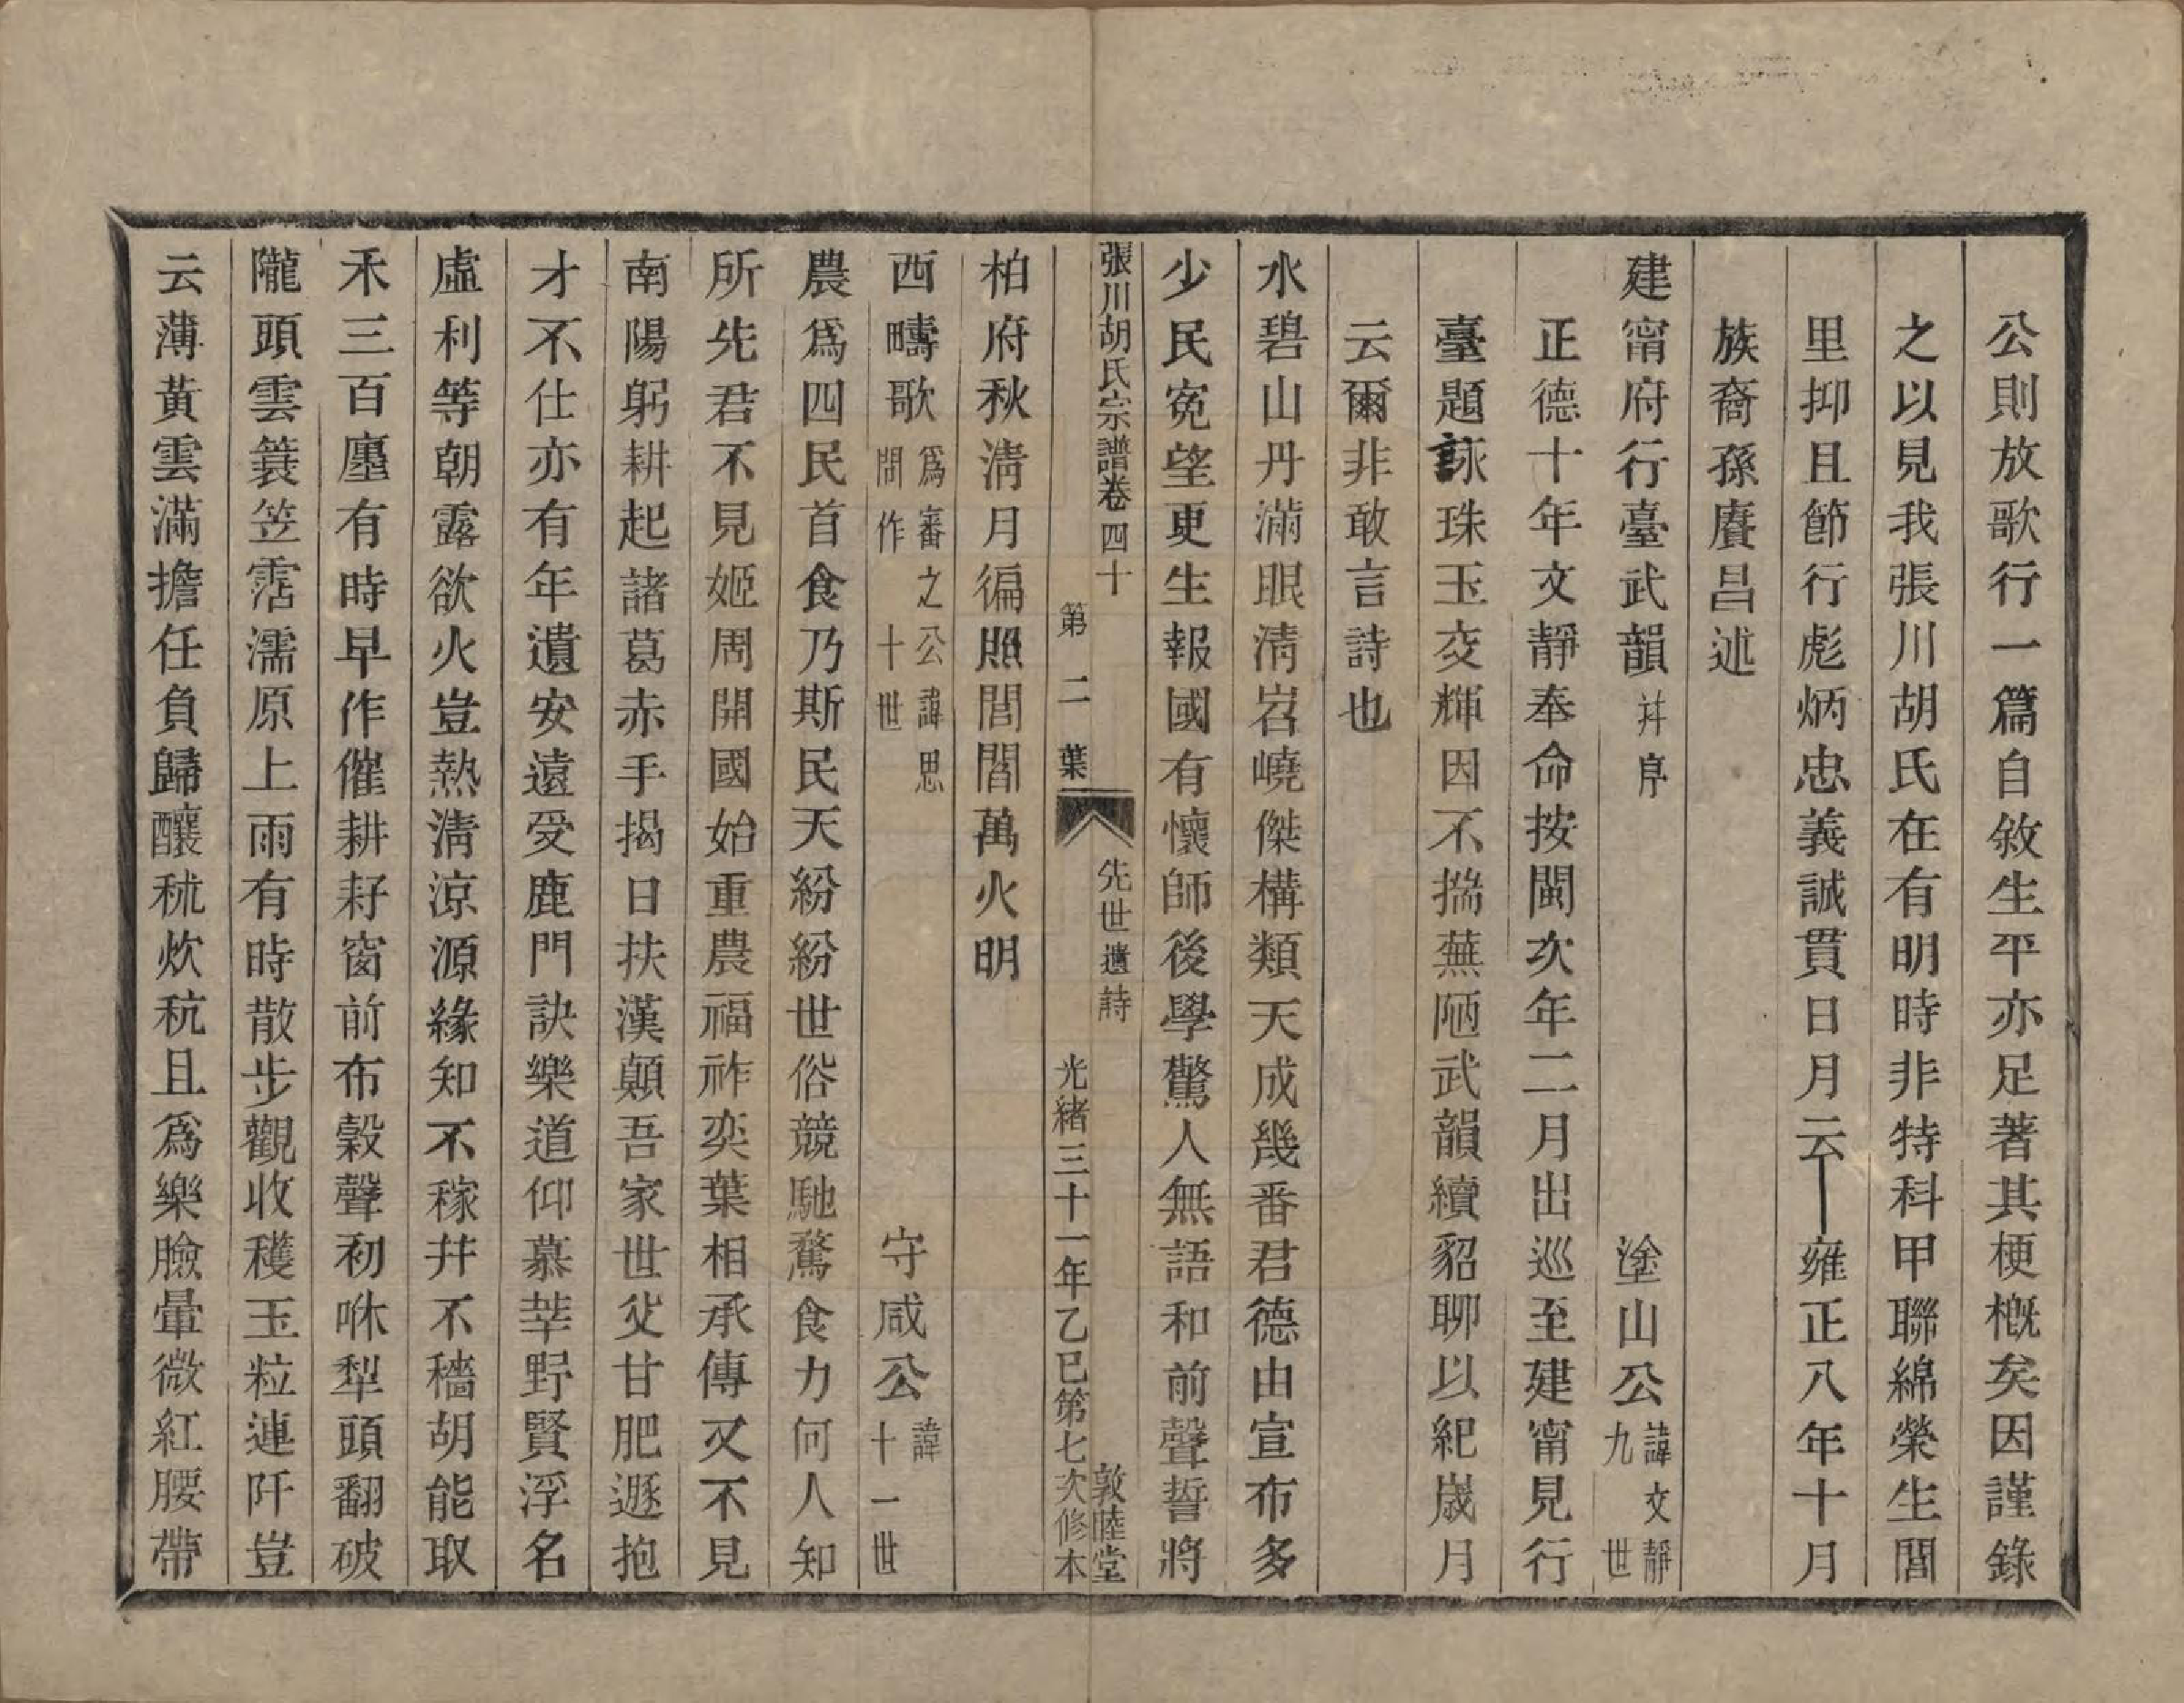 公則放歌行一篇自敘生平亦足著其梗概矣因謹錄
之以見我張川胡氏在有明時非特科甲聯綿榮生閭
里抑且節行彪炳忠義誠貫日月云雍正八年十月
族裔孫賡昌述
建甯府行臺武韻 幷序 塗山公 諱文靜九世
正德十年文靜奉命按閩次年二月出巡至建甯見行
臺題詠珠玉交輝因不揣蕪陋武韻續貂聊以紀歲月
云爾非敢言詩也
水碧山丹滿眼淸岧嶢傑構類天成幾番君德由宣布多
少民寃望更生報國有懷師後學驚人無語和前聲誓將
張川胡氏宗譜卷四十 先世遺詩 敦睦堂
第二葉 光緒三十一年乙巳第七次修本
柏府秋淸月徧照閭閻萬火明
西疇歌 爲審之公諱思問作十世 守咸公 諱十一世
農爲四民首食乃斯民天紛紛世俗競馳騖食力何人知
所先君不見姬周開國始重農福祚奕葉相承傳又不見
南陽躬耕起諸葛赤手揭日扶漢顚吾家世父甘肥遯抱
才不仕亦有年遺安遠受鹿門訣樂道仰慕莘野賢浮名
虛利等朝露欲火豈熱淸涼源緣知不稼幷不穡胡能取
禾三百廛有時早作催耕耔窗前布穀聲初咻犁頭翻破
隴頭雲簑笠霑濡原上雨有時散步觀收穫玉粒連阡豈
云薄黃雲滿擔任負歸釀秫炊秔且爲樂臉暈微紅腰帶